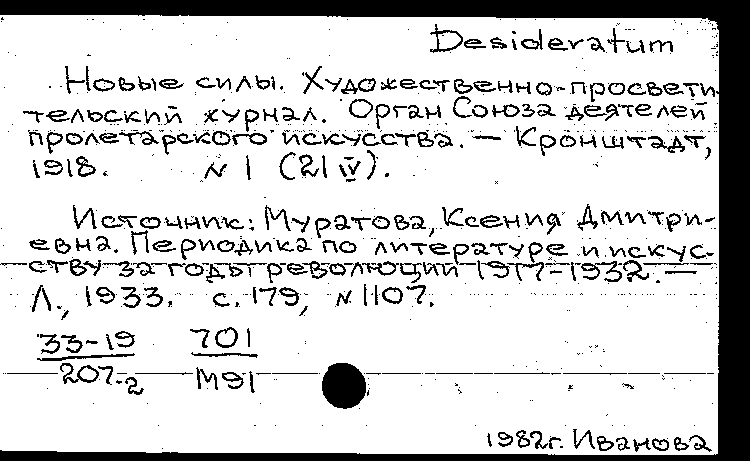 Desideratum
Новые силы. Художественно-просвети-
тельский журнал. Орган Союза деятелей
пролетарского искусства. — Кронштадт,
1918. N 1 (21 IV).
Источник: Муратова, Ксения Дмитри-
евна. Периодика по литературе и искус-
ству за годы революции 1917-1932. —
Л., 1933. с. 179, N 1107.
33-19 701
207-2 М91
1982г. Иванова